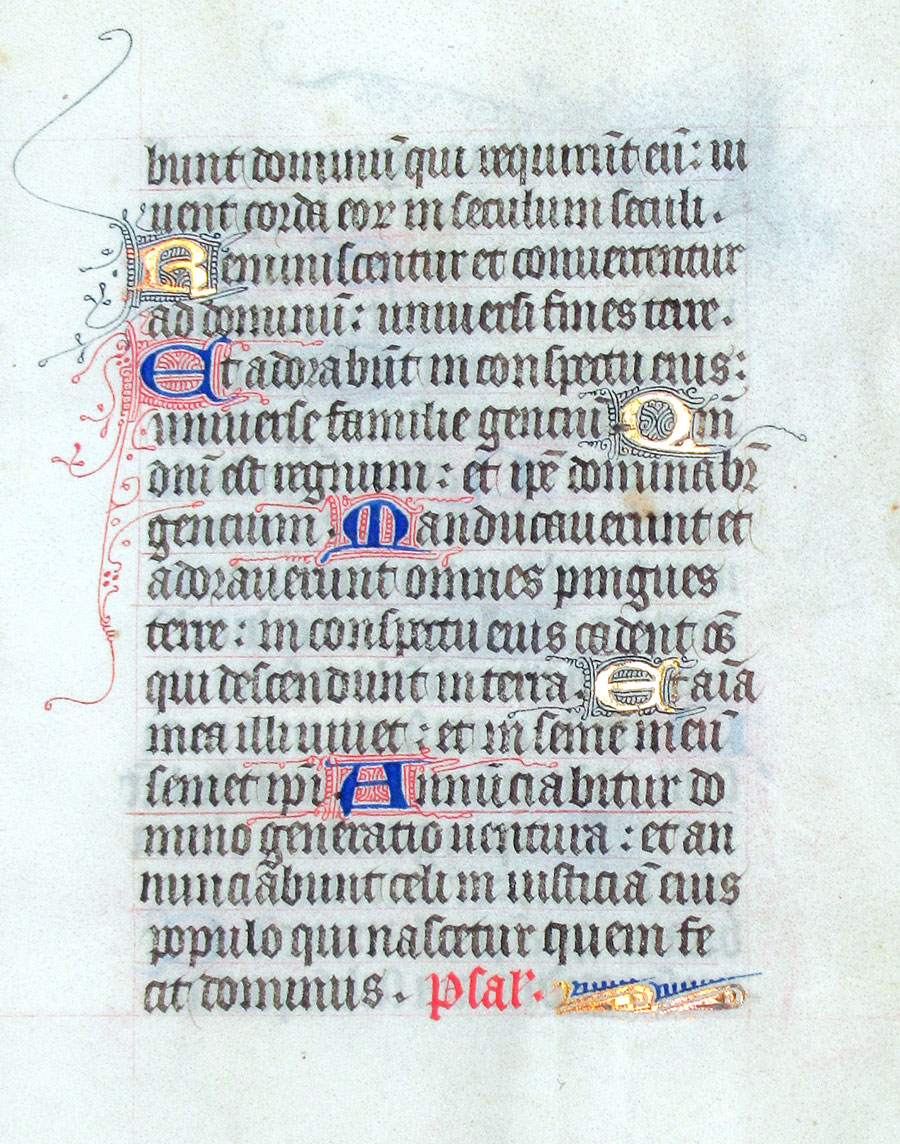 bunt dominū qui requirūt eū: ui
uent corda eoꝝ in seculum seculi.
Reminiscentur et conuertentur
ad dominū: uniuersi fines terre.
Et adorabūt in conspectu eius:
uniuerse familie genciū. Qm̄
dnī est regnum: et ipē dominabr̄
gencium. Manducauerunt et
adorauerunt omnes pingues
terre: in conspectu eius cadent os̄
qui descendunt in terra. Et aīa
mea illi uiuet: et in semē meū
seruiet ipī. Annūciabitur do
mino generatio uentura: et an
nunciābunt celi in iusticiā eius
populo qui nascetur quem fe
cit dominus. psal'.